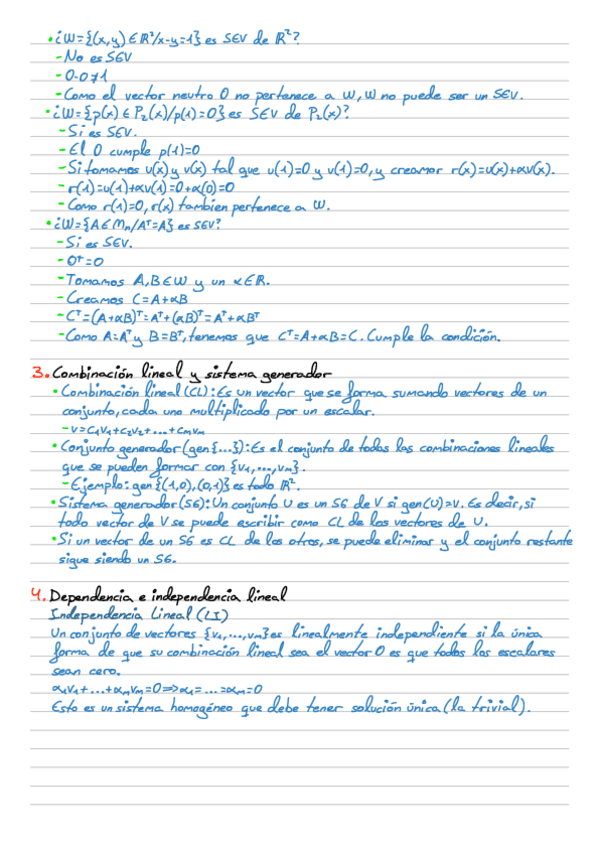 • ¿W={(x,y)∈ℝ²/x-y=1} es SEV de ℝ²?
- No es SEV
- 0-0≠1
- Como el vector neutro 0 no pertenece a W, W no puede ser un SEV.
• ¿W={p(x)∈P₂(x)/p(1)=0} es SEV de P₂(x)?
- Si es SEV.
- El 0 cumple p(1)=0
- Si tomamos u(x) y v(x) tal que u(1)=0 y v(1)=0, y creamor r(x)=u(x)+αv(x).
- r(1)=u(1)+αv(1)=0+α(0)=0
- Como r(1)=0, r(x) tambien pertenece a W.
• ¿W={A∈Mₙ/Aᵀ=A} es SEV?
- Si es SEV.
- 0ᵀ=0
- Tomamos A,B∈W y un α∈ℝ.
- Creamos C=A+αB
- Cᵀ=(A+αB)ᵀ=Aᵀ+(αB)ᵀ=Aᵀ+αBᵀ
- Como A=Aᵀ y B=Bᵀ, tenemos que Cᵀ=A+αB=C. Cumple la condición.
3. Combinación lineal y sistema generador
• Combinación lineal (CL): Es un vector que se forma sumando vectores de un
conjunto, cada uno multiplicado por un escalar.
- v=c₁v₁+c₂v₂+...+cₘvₘ
• Conjunto generador (gen{...}): Es el conjunto de todas las combinaciones lineales
que se pueden formar con {v₁,...,vₘ}.
- Ejemplo: gen{(1,0),(0,1)} es todo ℝ².
• Sistema generador (SG): Un conjunto U es un SG de V si gen(U)=V. Es decir, si
todo vector de V se puede escribir como CL de los vectores de U.
• Si un vector de un SG es CL de los otros, se puede eliminar y el conjunto restante
sigue siendo un SG.
4. Dependencia e independencia lineal
Independencia Lineal (LI)
Un conjunto de vectores {v₁,...,vₘ} es linealmente independiente si la única
forma de que su combinación lineal sea el vector 0 es que todos los escalares
sean cero.
α₁v₁+...+αₘvₘ=0⟹α₁=...=αₘ=0
Esto es un sistema homogéneo que debe tener solución única (la trivial).